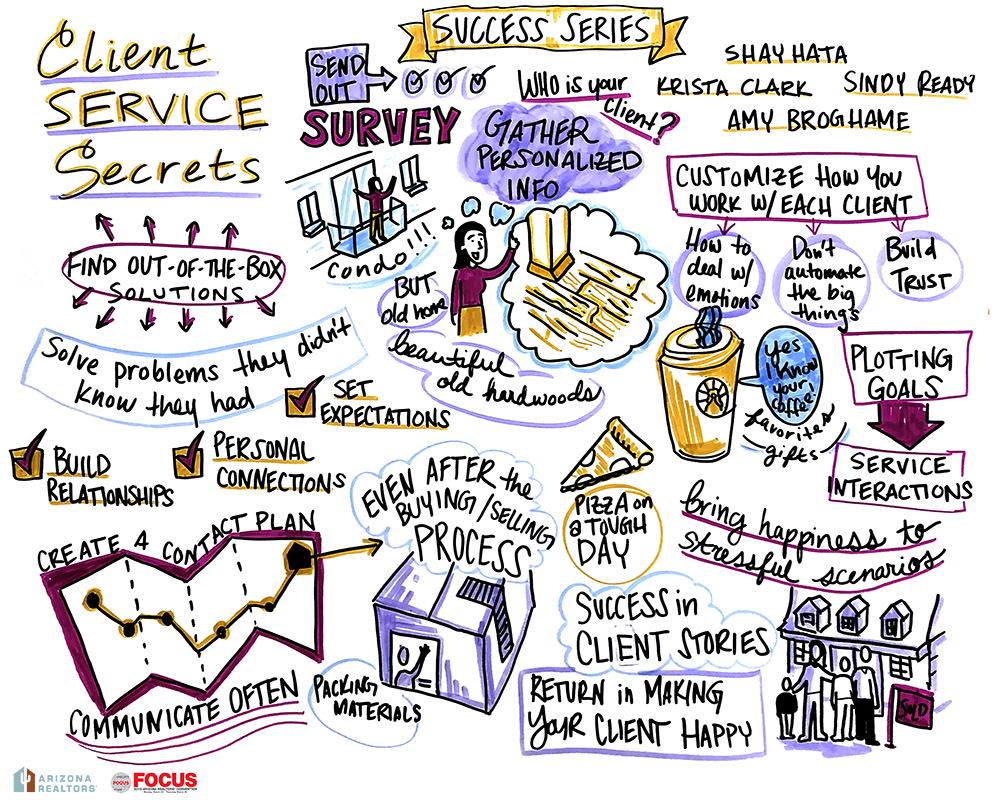 Client
SERVICE
Secrets
SUCCESS SERIES
SEND
OUT
SURVEY
WHO is your
client?
SHAY HATA
KRISTA CLARK
SINDY READY
AMY BROGHAME
GATHER
PERSONALIZED
INFO
condo!!!
BUT
old home
beautiful
old hardwoods
CUSTOMIZE HOW YOU
WORK W/ EACH CLIENT
How to
deal w/
emotions
Don't
automate
the big
things
Build
TRUST
FIND OUT-OF-THE-BOX
SOLUTIONS
Solve problems they didn't
know they had
SET
EXPECTATIONS
BUILD
RELATIONSHIPS
PERSONAL
CONNECTIONS
yes
I know
your
coffee.
favorites
gifts
PLOTTING
GOALS
SERVICE
INTERACTIONS
EVEN AFTER the
BUYING/SELLING
PROCESS
PIZZA on
a TOUGH
DAY
bring happiness to
stressful scenarios
CREATE A CONTACT PLAN
COMMUNICATE OFTEN
PACKING
MATERIALS
SUCCESS in
CLIENT STORIES
RETURN in MAKING
YOUR CLIENT HAPPY
SOLD
ARIZONA
REALTORS
FOCUS